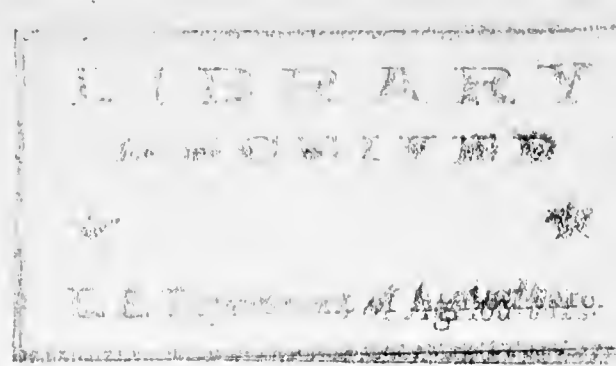 LIBRARY
RECEIVED
★ ★
U. S. Department of Agriculture.